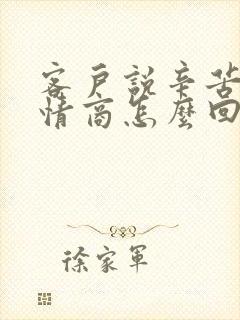 客戶說辛苦
情商怎麼回
徐家軍